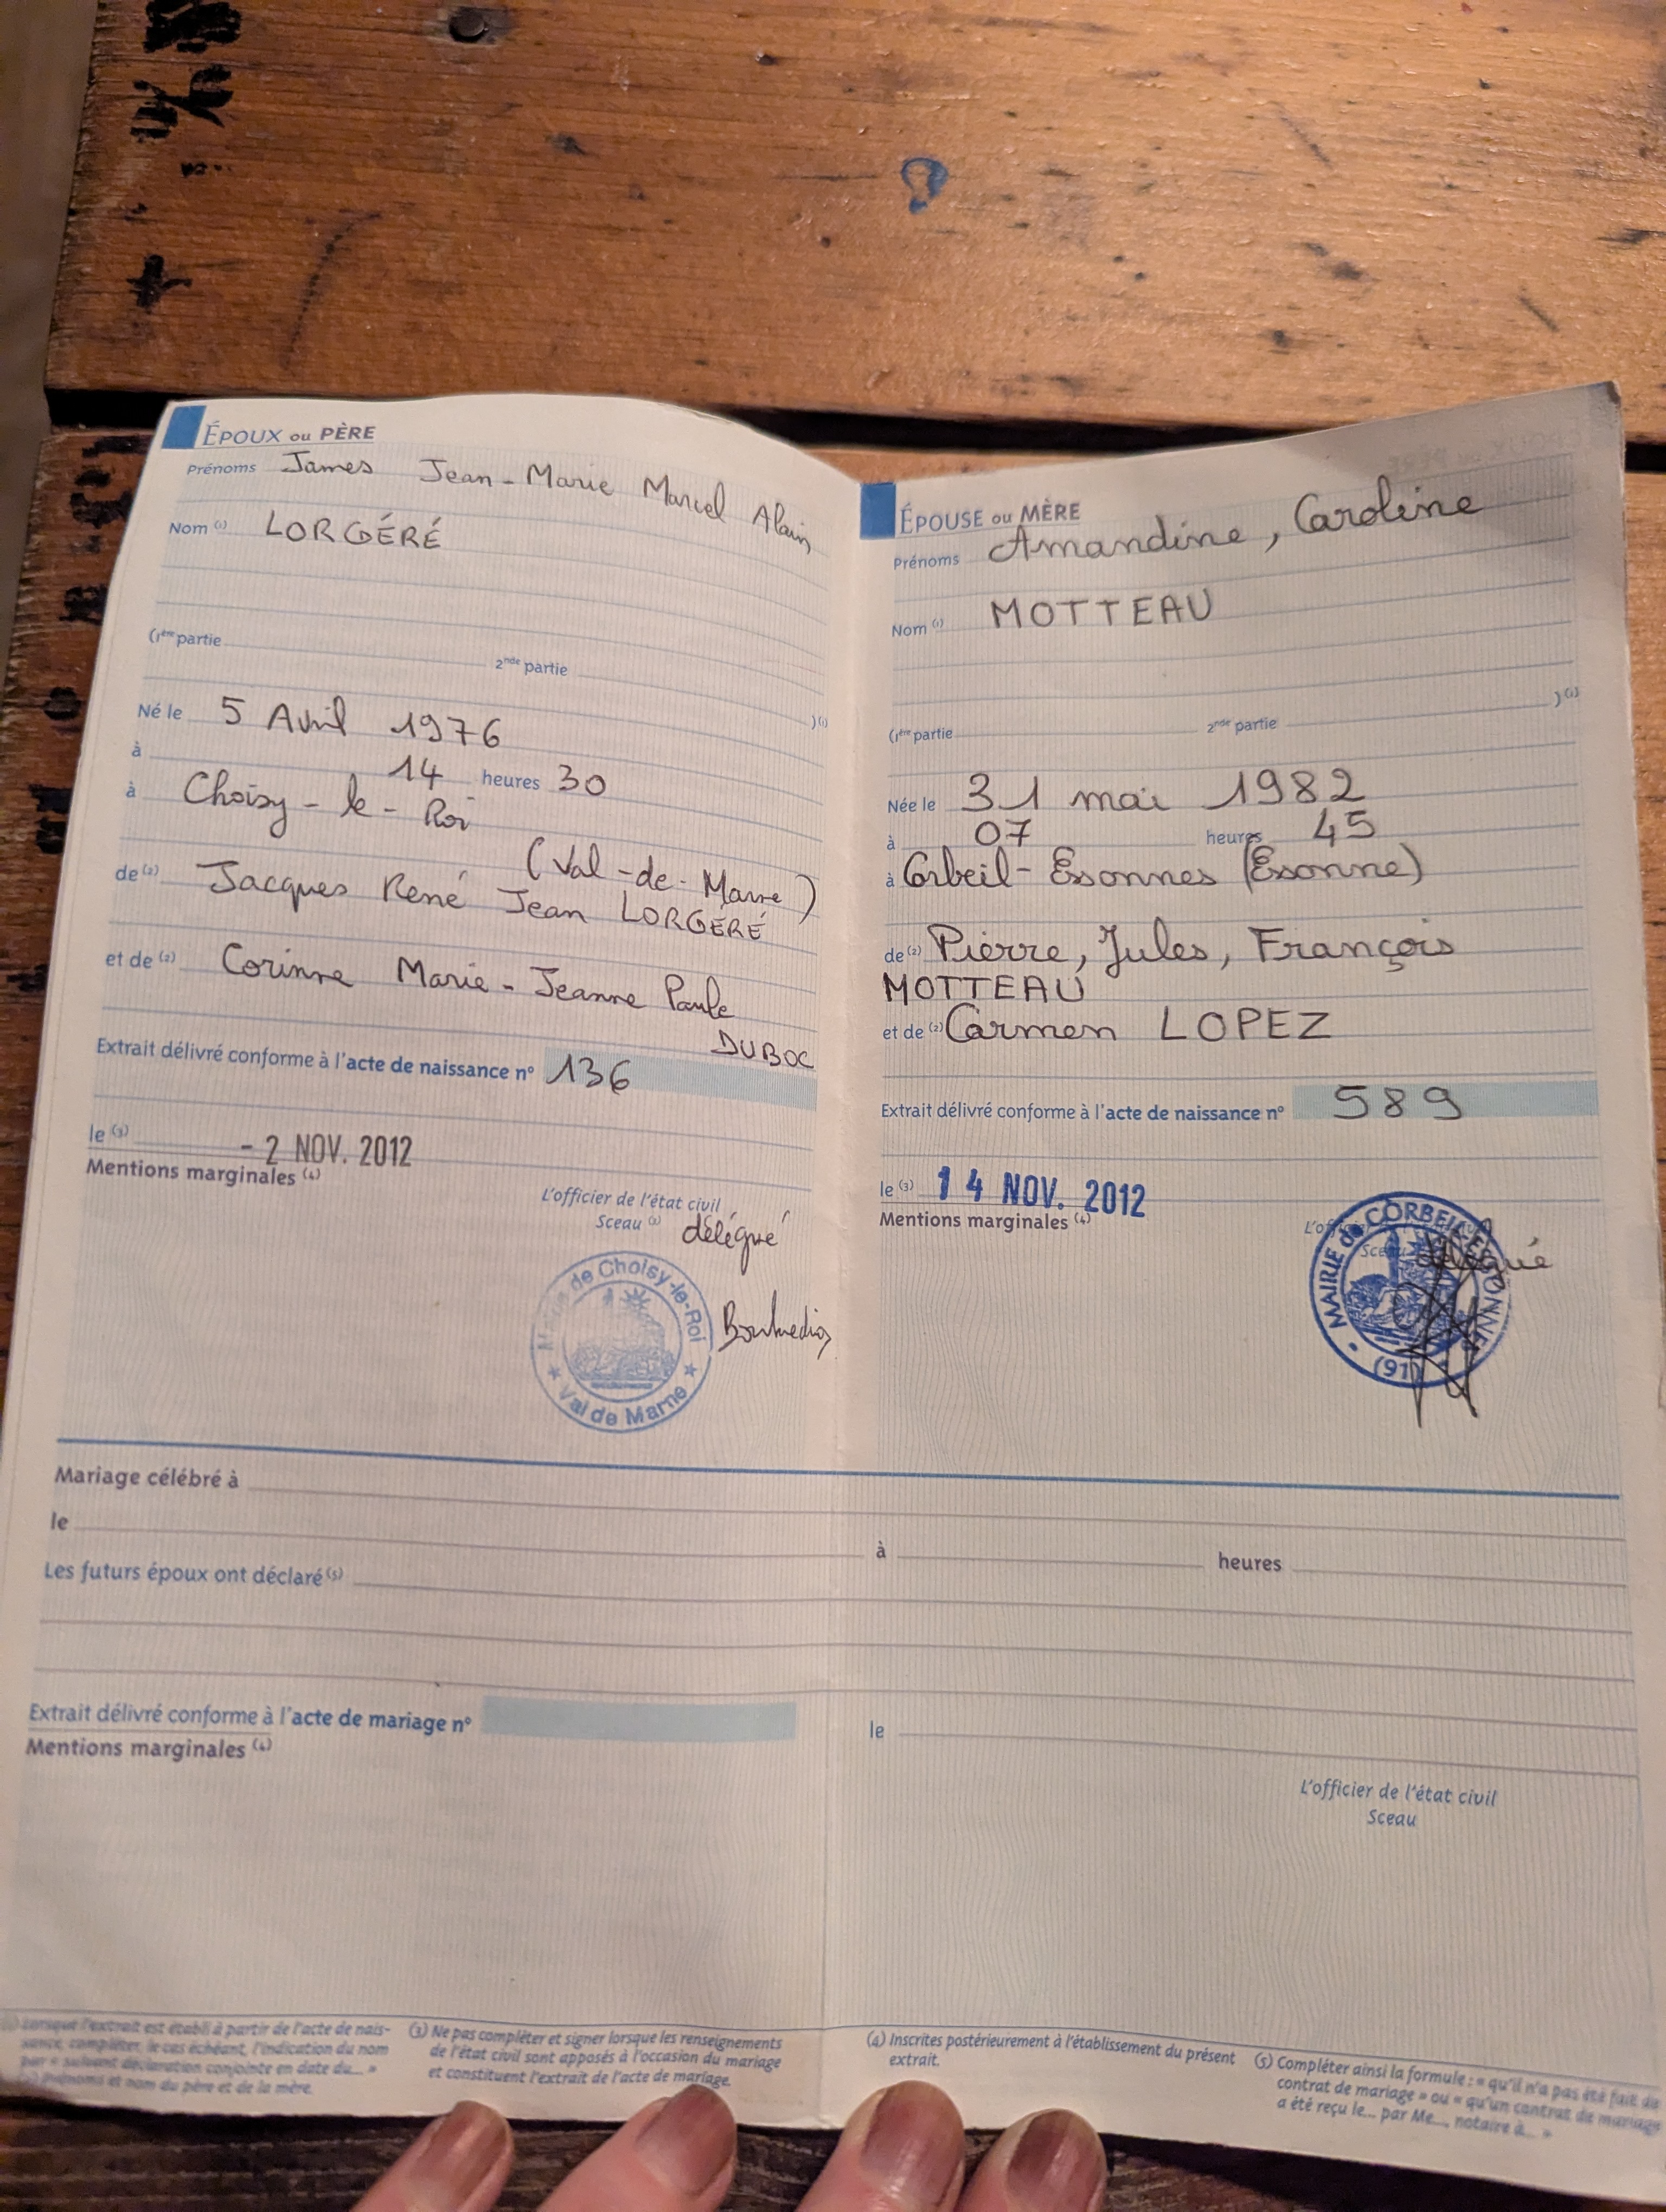 ÉPOUX ou PÈRE
Prénoms James Jean-Marie Marcel Alain
Nom (1) LORGÉRÉ
(1ère partie 2nde partie )(1)
Né le 5 Avril 1976
à 14 heures 30
à Choisy-le-Roi
(Val-de-Marne)
de (2) Jacques René Jean LORGÉRÉ
et de (2) Corinne Marie-Jeanne Paule
DUBOC
Extrait délivré conforme à l'acte de naissance n° 136
le (3) - 2 NOV. 2012
Mentions marginales (4)
L'officier de l'état civil
Sceau (3) délégué
Mairie de Choisy-le-Roi
Val de Marne
ÉPOUSE ou MÈRE
Prénoms Amandine, Caroline
Nom (1) MOTTEAU
)(1)
(1ère partie 2nde partie
Née le 31 mai 1982
à 07 heures 45
à Corbeil-Essonnes (Essonne)
de (2) Pierre, Jules, François
MOTTEAU
et de (2) Carmen LOPEZ
Extrait délivré conforme à l'acte de naissance n° 589
le (3) 14 NOV. 2012
Mentions marginales (4)
délégué
MAIRIE de CORBEIL-ESSONNES
(91)
Mariage célébré à
le à heures
Les futurs époux ont déclaré (5)
Extrait délivré conforme à l'acte de mariage n° le
Mentions marginales (4)
L'officier de l'état civil
Sceau
(1) Lorsque l'extrait est établi à partir de l'acte de nais-
sance, compléter, le cas échéant, l'indication du nom
par « suivant déclaration conjointe en date du... »
(2) Prénoms et nom du père et de la mère.
(3) Ne pas compléter et signer lorsque les renseignements
de l'état civil sont apposés à l'occasion du mariage
et constituent l'extrait de l'acte de mariage.
(4) Inscrites postérieurement à l'établissement du présent
extrait.
(5) Compléter ainsi la formule : « qu'il n'a pas été fait de
contrat de mariage » ou « qu'un contrat de mariage
a été reçu le... par Me..., notaire à... »